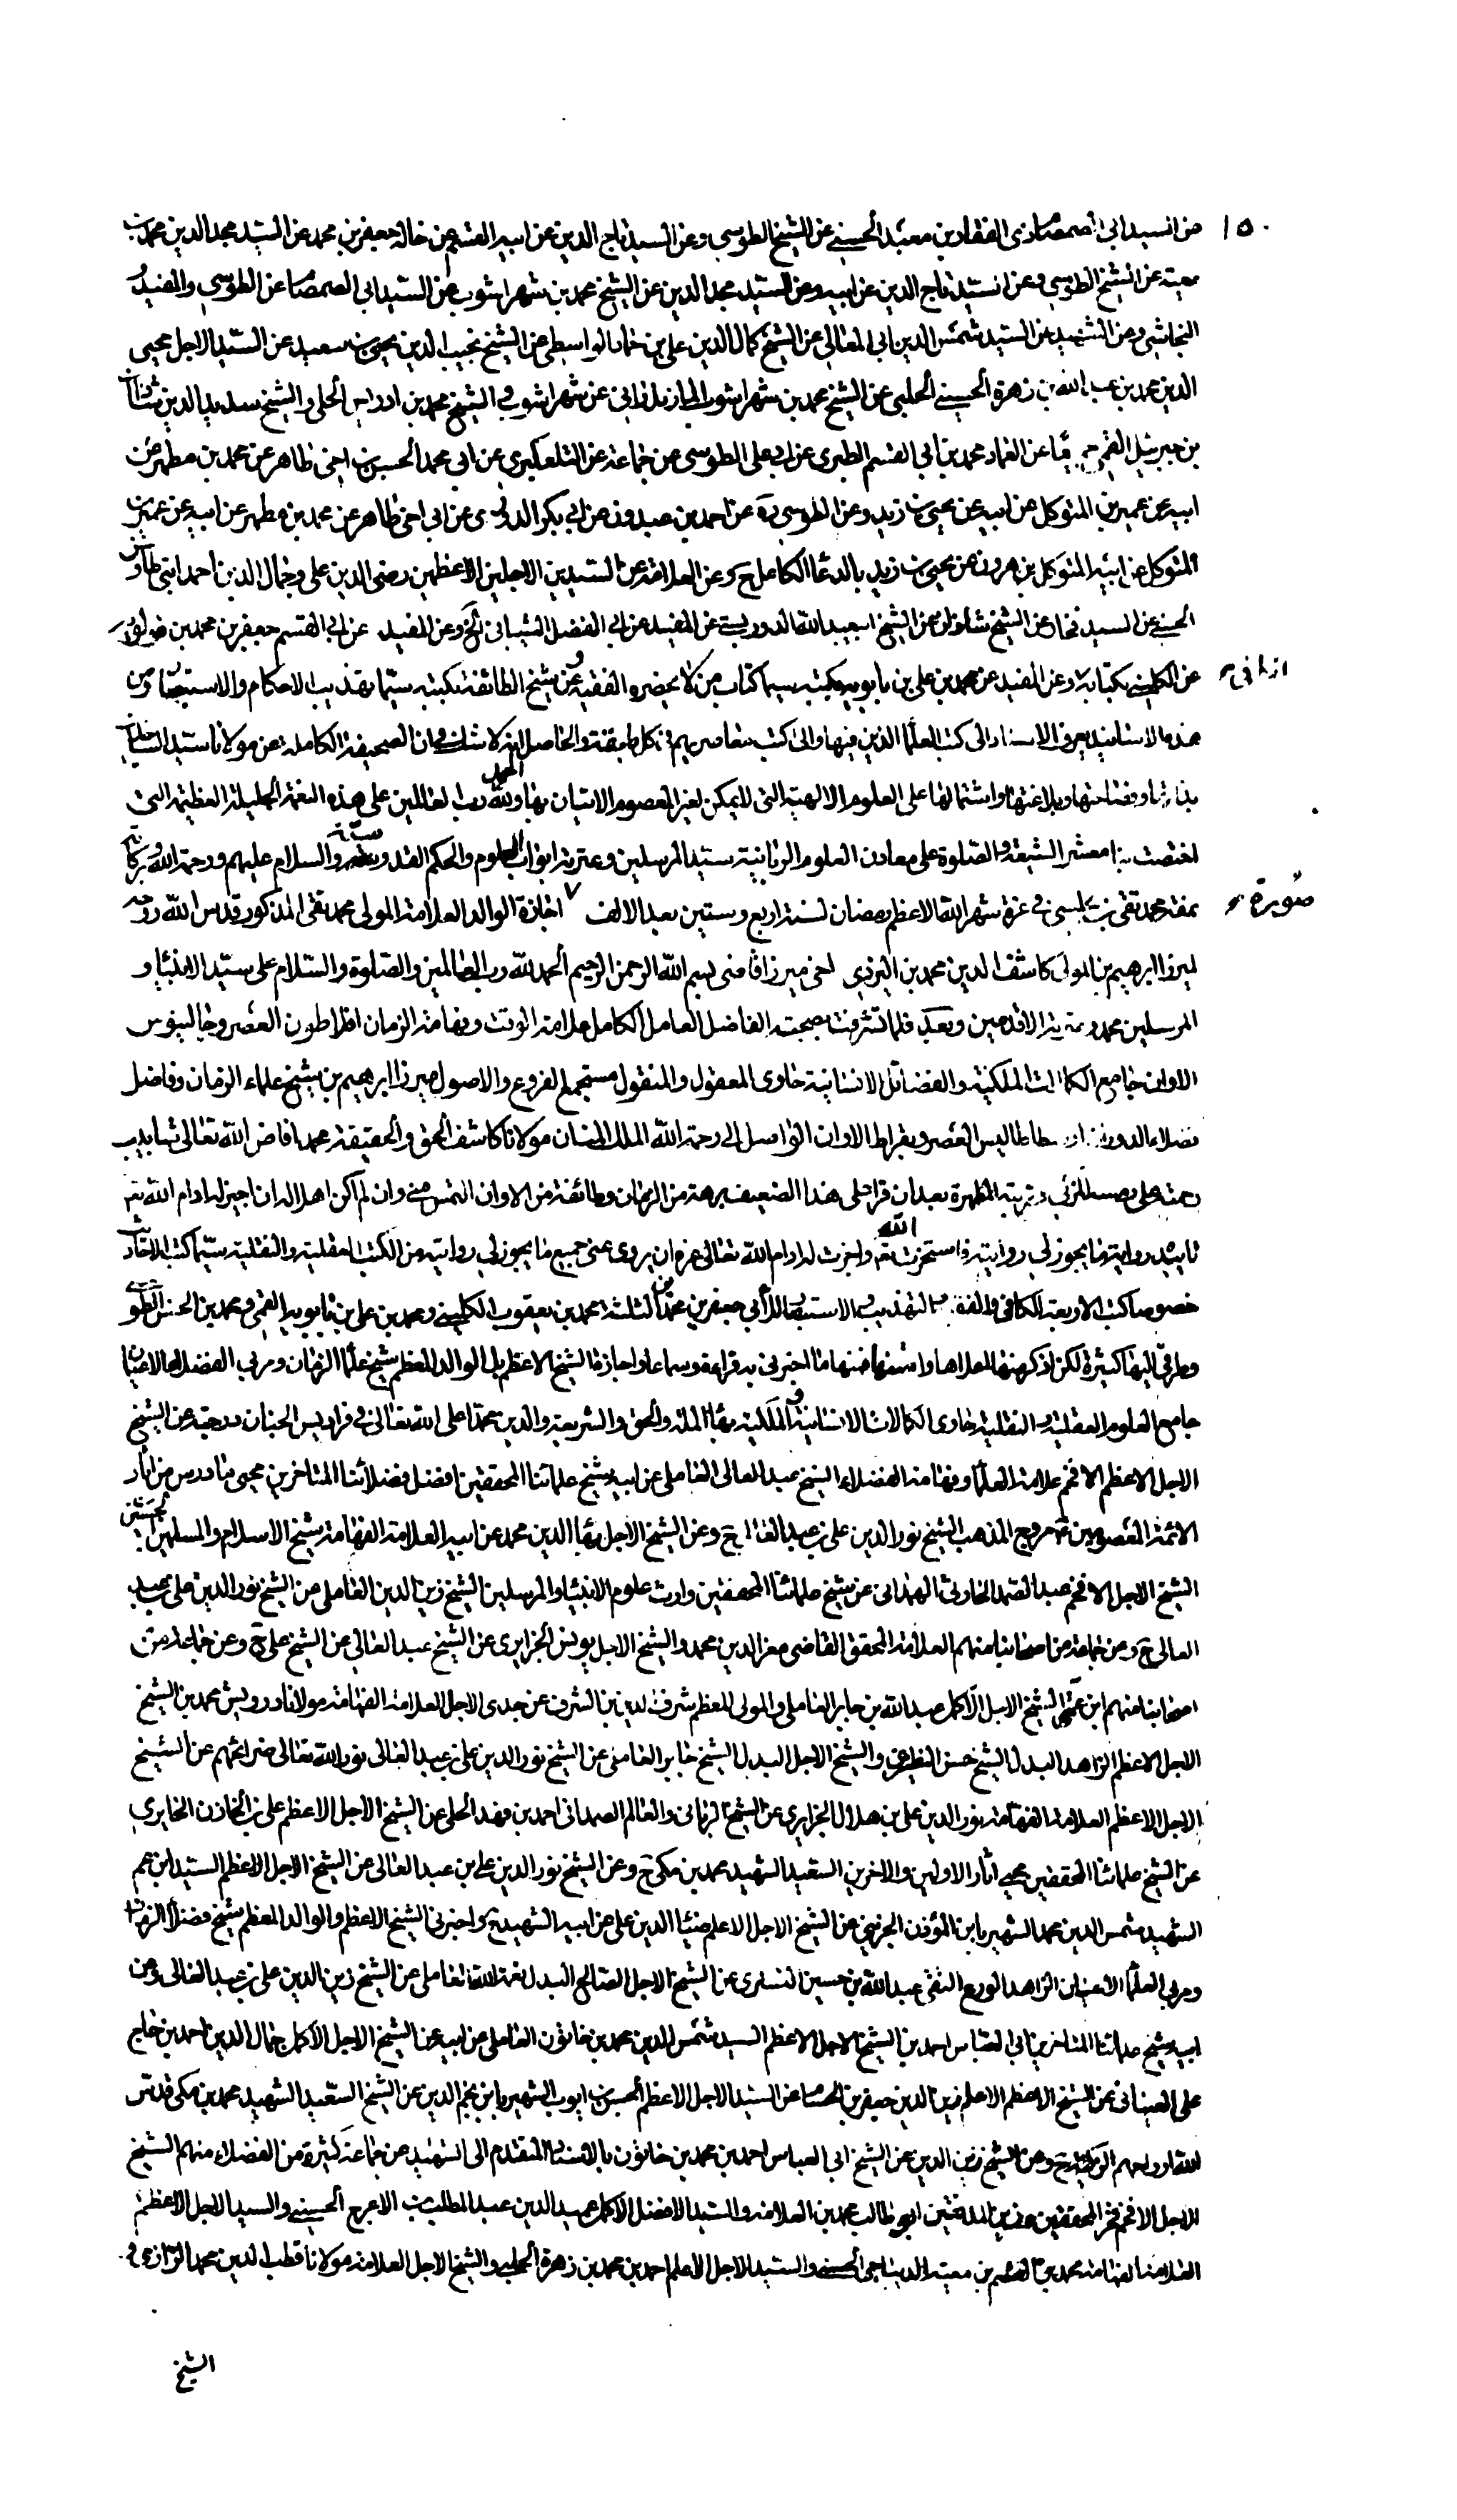 ١٥٠
عن السيد ابي الصمصام ذي الفقار بن معبد الحسيني عن الشيخ الطوسي وعن السيد تاج الدين عن ابيه القسم عن خاله جعفر بن محمد عن السيد مجد الدين محمد بن
معية عن الشيخ الطوسي وعن السيد تاج الدين عن ابيه وعن السيد مجد الدين عن الشيخ محمد بن شهراشوب عن السيد ابي الصمصام عن الطوسي والمفيد و
النجاشي وعن الشهيد عن السيد شمس الدين ابي المعالي عن الشيخ كمال الدين علي بن حماد الواسطي عن الشيخ نجيب الدين يحيى بن سعيد عن السيد الاجل محيي
الدين محمد بن عبد الله بن زهرة الحسيني الحلبي عن الشيخ محمد بن شهراشوب المازندراني عن شهراشوب والشيخ محمد بن ادريس الحلي والشيخ سديد الدين شاذان
بن جبرئيل القمي جميعا عن العماد محمد بن ابي القسم الطبري عن ابي علي الطوسي عن جماعة عن التلعكبري عن ابي محمد الحسن بن اخي طاهر عن محمد بن مطهر عن
ابيه عن عمير بن المتوكل عن ابيه عن يحيى بن زيد وعن الطوسي ره عن احمد بن عبدون عن ابي بكر الدوري عن ابن اخي طاهر عن محمد بن مطهر عن ابيه عن عمير بن
المتوكل عن ابيه المتوكل بن هرون عن يحيى بن زيد بالدعاء الكامل ح وعن العلامة عن السيدين الاجلين الاعظمين رضي الدين علي وجمال الدين احمد ابني طاوس
الحسني عن السيد فخار عن الشيخ شاذان عن الشيخ عبد الله الدوريستي عن المفيد عن ابي الفضل الشيباني الخ وعن المفيد عن ابي القسم جعفر بن محمد بن قولويه
عن الكليني بكتابه وعن المفيد عن محمد بن علي بن بابويه بكتبه سيما كتاب من لا يحضره الفقيه وعن شيخ الطائفة بكتبه سيما تهذيب الاحكام والاستبصار ومن
هذه الاسانيد يعرف الاسناد الى كتب العلماء الذين فيها والى كتب معاصريهم في كل طبقة والحاصل انه لا شك في ان الصحيفة الكاملة عن مولانا سيد الساجدين
بذاتها وفصاحتها وبلاغتها واشتمالها على العلوم الالهية التي لا يمكن لغير المعصوم الاتيان بها والحمد لله رب العالمين على هذه النعمة الجليلة العظيمة التي
اختصت بنا معشر الشيعة والصلوة على معادن العلوم الربانية سيد المرسلين وعترته ابواب العلوم والحكم القدوسية والسلام عليهم ورحمة الله وبركاته
نمقه محمد تقي بن مجلسي في غرة شهر الله الاعظم رمضان لسنة اربع وستين بعد الالف
صورة اجازة الوالد العلامة المولى محمد تقي المذكور قدس الله روحه
لميرزا ابراهيم بن المولى كاشف الدين محمد بن اليزدي اخي ميرزا قاضي بسم الله الرحمن الرحيم الحمد لله رب العالمين والصلوة والسلام على سيد الانبياء و
المرسلين محمد وعترته الاقدمين وبعد فلما تشرفت بصحبة الفاضل العامل الكامل علامة الوقت وفهامة الزمان افلاطون العصر وجالينوس
الاوان جامع الكمالات الملكية والفضائل الانسانية حاوي المعقول والمنقول مستجمع الفروع والاصول ميرزا ابراهيم بن شيخ علماء الزمان وفاضل
فضلاء الدوران ارسطاطاليس العصر وبقراط الاوان الواصل الى رحمة الله الملك المنان مولانا كاشف الحق والحقيقة محمد افاض الله تعالى شآبيب
رحمته على تربته المطهرة بعد ان قرا على هذا الضعيف برهة من الزمان وطائفة من الاوان التمس مني وان لم اكن اهلا له ان اجيز له ادام الله
تاييده رواية ما يجوز لي روايته فاستخرت الله واجزت له ادام الله تعالى عزه ان يروي عني جميع ما يجوز لي روايته من الكتب العقلية والنقلية سيما كتب الاحاديث
خصوصا كتب الاربعة الكافي والفقيه والتهذيب والاستبصار لابي جعفرين محمدين الثلثة محمد بن يعقوب الكليني ومحمد بن علي بن بابويه القمي ومحمد بن الحسن الطوسي
وطرقي اليها كثيرة لكن اذكر منها اعلاها واشهرها فمنها ما اخبرني به قراءة وسماعا واجازة الشيخ الاعظم بل الوالد المعظم شيخ علماء الزمان ومربي الفضلاء الاعيان
جامع العلوم العقلية والنقلية حاوي الكمالات الانسانية والملكية بهاء الملة والحق والشريعة والدين محمد اعلى الله تعالى في فراديس الجنان درجته عن الشيخ
الاجل الاعظم الافخم علامة العلماء وفهامة الفضلاء الشيخ عبد العالي العاملي عن ابيه شيخ علمائنا المحققين افضل فضلائنا المتاخرين محيي ما درس من آثار
الائمة المعصومين مروج المذهب الشيخ نور الدين علي بن عبد العالي ح وعن الشيخ الاجل بهاء الدين محمد عن ابيه العلامة الفهامة شيخ الاسلام والمسلمين الحسين بن
الشيخ الاجل الافخم عبد الصمد الحارثي الهمداني عن شيخ علمائنا المحققين وارث علوم الانبياء والمرسلين الشيخ زين الدين العاملي عن الشيخ نور الدين علي بن عبد
العالي ح وعن جماعة من اصحابنا منهم العلامة المحقق القاضي معز الدين محمد والشيخ الاجل يونس الجزايري عن الشيخ عبد العالي عن الشيخ علي ح وعن جماعة من
اصحابنا منهم ابن عمتي الشيخ الاجل الاكمل عبد الله بن جابر العاملي والمولى المعظم شرف الدين بن الشرف عن جدي الاجل العلامة الفهامة مولانا درويش محمد بن الشيخ
الاجل الاعظم الزاهد البدل الشيخ حسن النطنزي والشيخ الاجل البدل الشيخ جابر العاملي عن الشيخ نور الدين علي بن عبد العالي نور الله تعالى ضرائحهم عن الشيخ
الاجل الاعظم العلامة الفهامة نور الدين علي بن هلال الجزايري عن الشيخ الرباني والعالم الصمداني احمد بن فهد الحلي عن الشيخ الاجل الاعظم علي بن الخازن الحايري
عن الشيخ علمائنا المحققين محيي آثار الاولين والاخرين السعيد الشهيد محمد بن مكي ح وعن الشيخ نور الدين علي بن عبد العالي عن الشيخ الاجل الاعظم السيد ابن عم
الشهيد شمس الدين محمد الشهير بابن المؤذن الجزيني عن الشيخ الاجل الاعلم ضياء الدين علي عن ابيه الشهيد ح واخبرني الشيخ الاعظم والوالد المعظم شيخ فضلاء الزمان
ومربي العلماء الاعيان الزاهد الورع التقي عبد الله بن حسين التستري عن الشيخ الاجل الصالح البدل نعمة الله العاملي عن الشيخ زين الدين علي بن عبد العالي وعن
ابيه شيخ علمائنا المتاخرين ابي العباس احمد بن الشيخ الاجل الاعظم السيد شمس الدين محمد بن خاتون العاملي عن ابيه عن الشيخ الاجل الاكمل جمال الدين احمد بن حاج
علي العيناثي عن الشيخ الاعظم الاعلم زين الدين جعفر بن الحسام عن السيد الاجل الاعظم الحسن بن ايوب الشهير بابن نجم الدين عن الشيخ السعيد الشهيد محمد بن مكي قدس
الله ارواحهم الزكية ح وعن الشيخ زين الدين عن الشيخ ابي العباس احمد بن محمد بن خاتون بالاسناد المتقدم الى الشهيد عن جماعة كثيرة من الفضلاء منهم الشيخ
الاجل الافخم فخر المحققين وزين المدققين ابو طالب محمد بن العلامة والسيد الافضل الاكمل عميد الدين عبد المطلب بن الاعرج الحسيني والسيد الاجل الاعظم
العلامة الفهامة محمد بن القسم بن معية الديباجي الحسني والسيد الاجل الاعلم احمد بن محمد بن زهرة الحلبي والشيخ الاجل العلامة مولانا قطب الدين محمد الرازي و
الشيخ